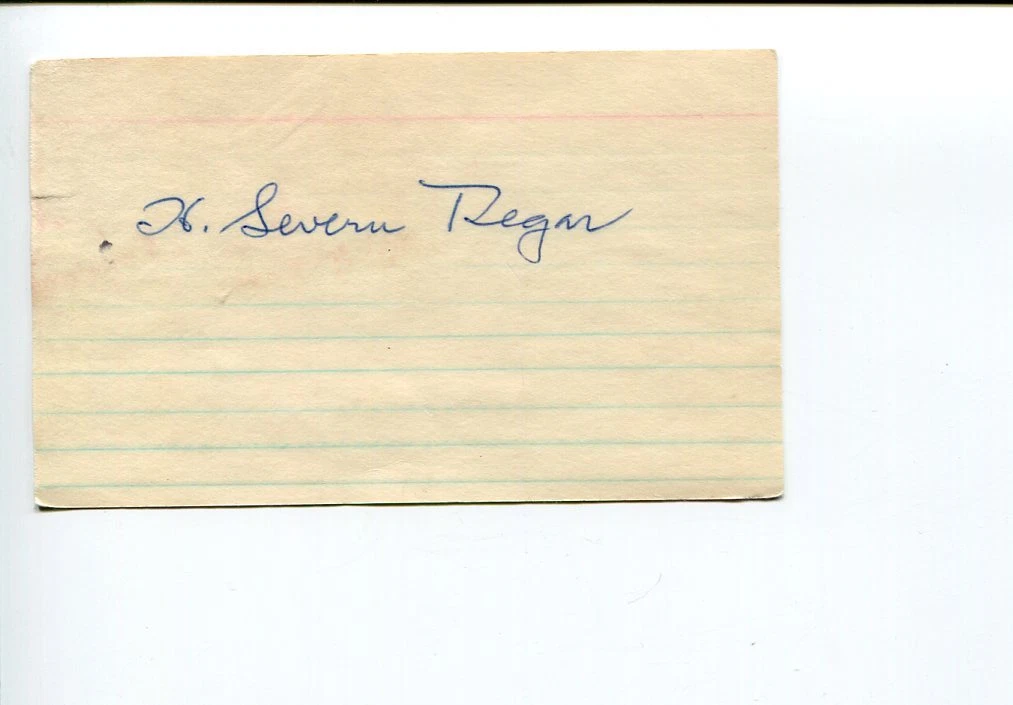 H. Severn Regar